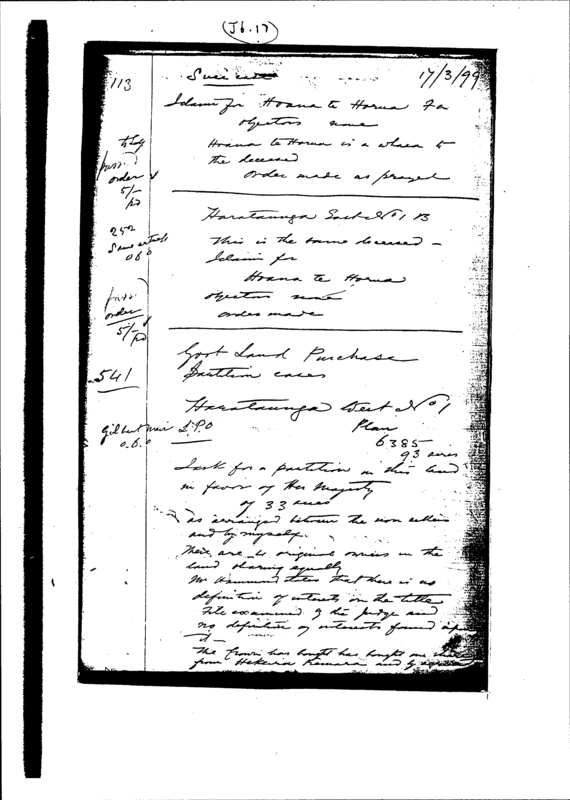 (J6.17)
113
17/3/99
Idem for Hoana te Horua For
objectors none
Hoana te Horua is a to
the deceased
order made as prayed
order
5/-
pd
Harataunga East No 1 B
252
This is the same deceased -
Same
0 6 0
Idem for
Hoana te Horua
objectors none
order made
order
5/-
pd
Govt Land Purchase
Partition cases
541
Harataunga West No 1
Gilbert Mair L.P.O
Plan
0.6.0
6385
93 acres
I ask for a partition in this land
in favor of Her Majesty
of 33 acres
as arranged between the non sellers
and by myself.
There are original owners in the
land sharing equally
Mr Hammond states that there is no
definition of interests on the title
File examined by the Judge and
no definition of interests found upon
it -
The Crown has bought has bought one share
from Hekeria Kamara and by